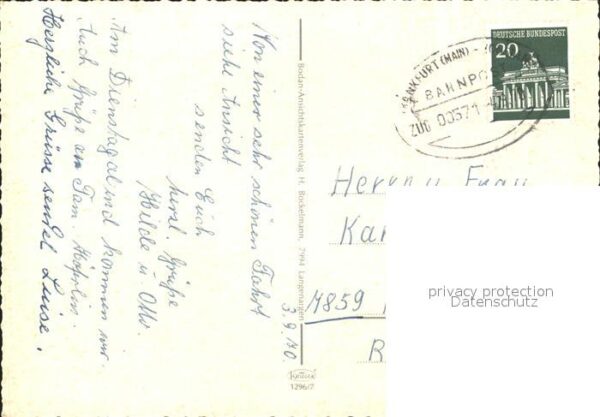 3.9.70.
Von einer sehr schönen Fahrt
siehe Ansicht
senden Euch
herzl. Grüße
Hilde u. Otto.
Am Dienstagabend kommen wir.
Auch Grüße an Fam.
Herzliche Grüsse sendet Luise.
Bodan-Ansichtskartenverlag H. Bockelmann, 7994 Langenargen
1296/7
DEUTSCHE BUNDESPOST
20
FRANKFURT (MAIN)
BAHNPOST
ZUG 00571
Herrn u. Frau
Kar
7859
R
privacy protection
Datenschutz